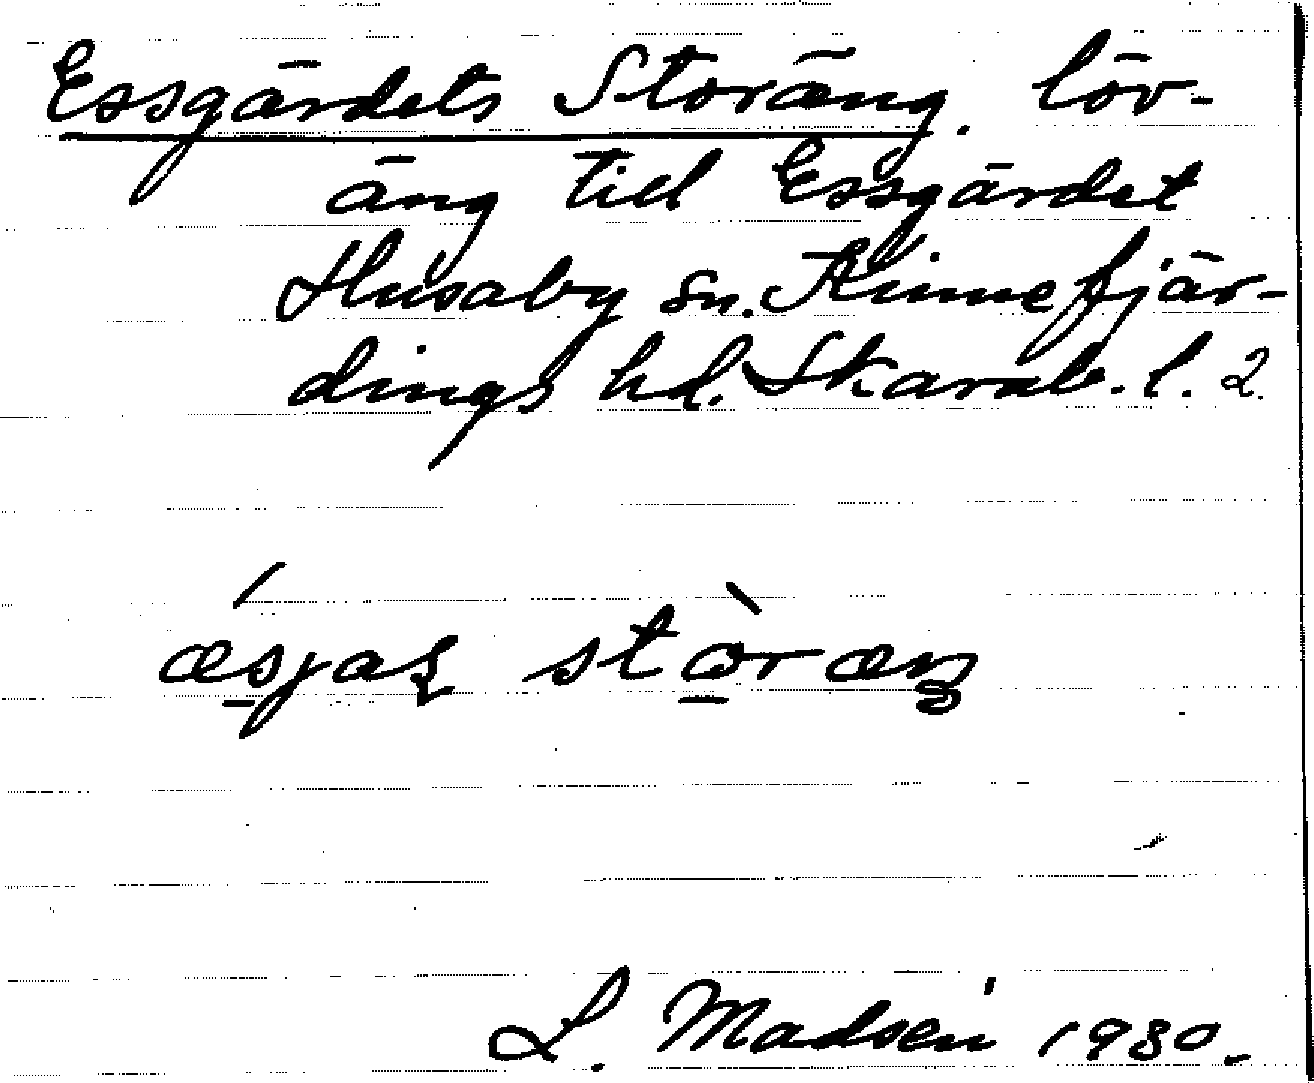 Essgärdets Storäng. löv-
äng till Essgärdet
Husaby sn. Kinnefjär-
dings hd. Skarab. l. 2.
L. Madsén 1930.